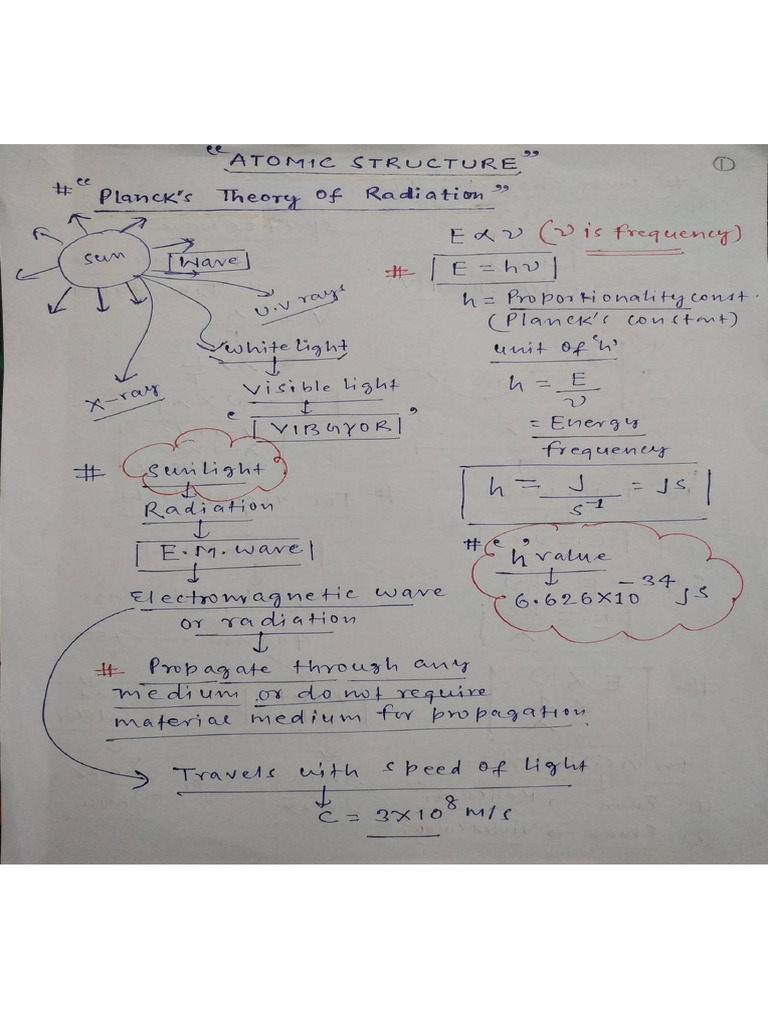 "ATOMIC STRUCTURE"
①
# "Planck's Theory of Radiation"
Sun
Wave
U.V rays
White light
X-ray
Visible light
'VIBGYOR'
# Sunlight
Radiation
E.M. wave
Electromagnetic wave
or radiation
# Propagate through any
medium or do not require
material medium for propagation.
Travels with speed of light
C = 3×10⁸ M/s
E ∝ ν (ν is frequency)
# E = hν
h = Proportionality const.
(Planck's constant)
unit of 'h'
h = E/ν
= Energy
frequency
h = J/s⁻¹ = Js
# 'h' value
6.626×10⁻³⁴ Js